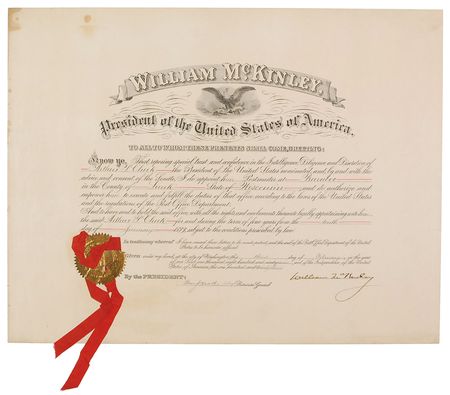 WILLIAM McKINLEY,
President of the United States of America.
TO ALL TO WHOM THESE PRESENTS SHALL COME, GREETING:
Know ye, That reposing special trust and confidence in the Intelligence, Diligence and Discretion of
Arthur F. Clark the President of the United States nominated, and by and with the
advice and consent of the Senate, did appoint him Postmaster at
in the County of State of Wisconsin and do authorize and
empower him to execute and fulfil the duties of that office according to the laws of the United States
and the regulations of the Post Office Department.
And to have and to hold the said office, with all the rights and emoluments thereunto legally appertaining unto him,
the said Arthur F. Clark for and during the term of four years from the tenth
day of January 1898, subject to the conditions prescribed by law.
In testimony whereof I have caused these letters to be made patent, and the seal of the Post Office Department of the United
States to be hereunto affixed.
Given under my hand, at the city of Washington, the day of in the year
of our Lord one thousand eight hundred and and of the Independence of the United
States of America, the one hundred and
By the PRESIDENT: William McKinley
Postmaster General